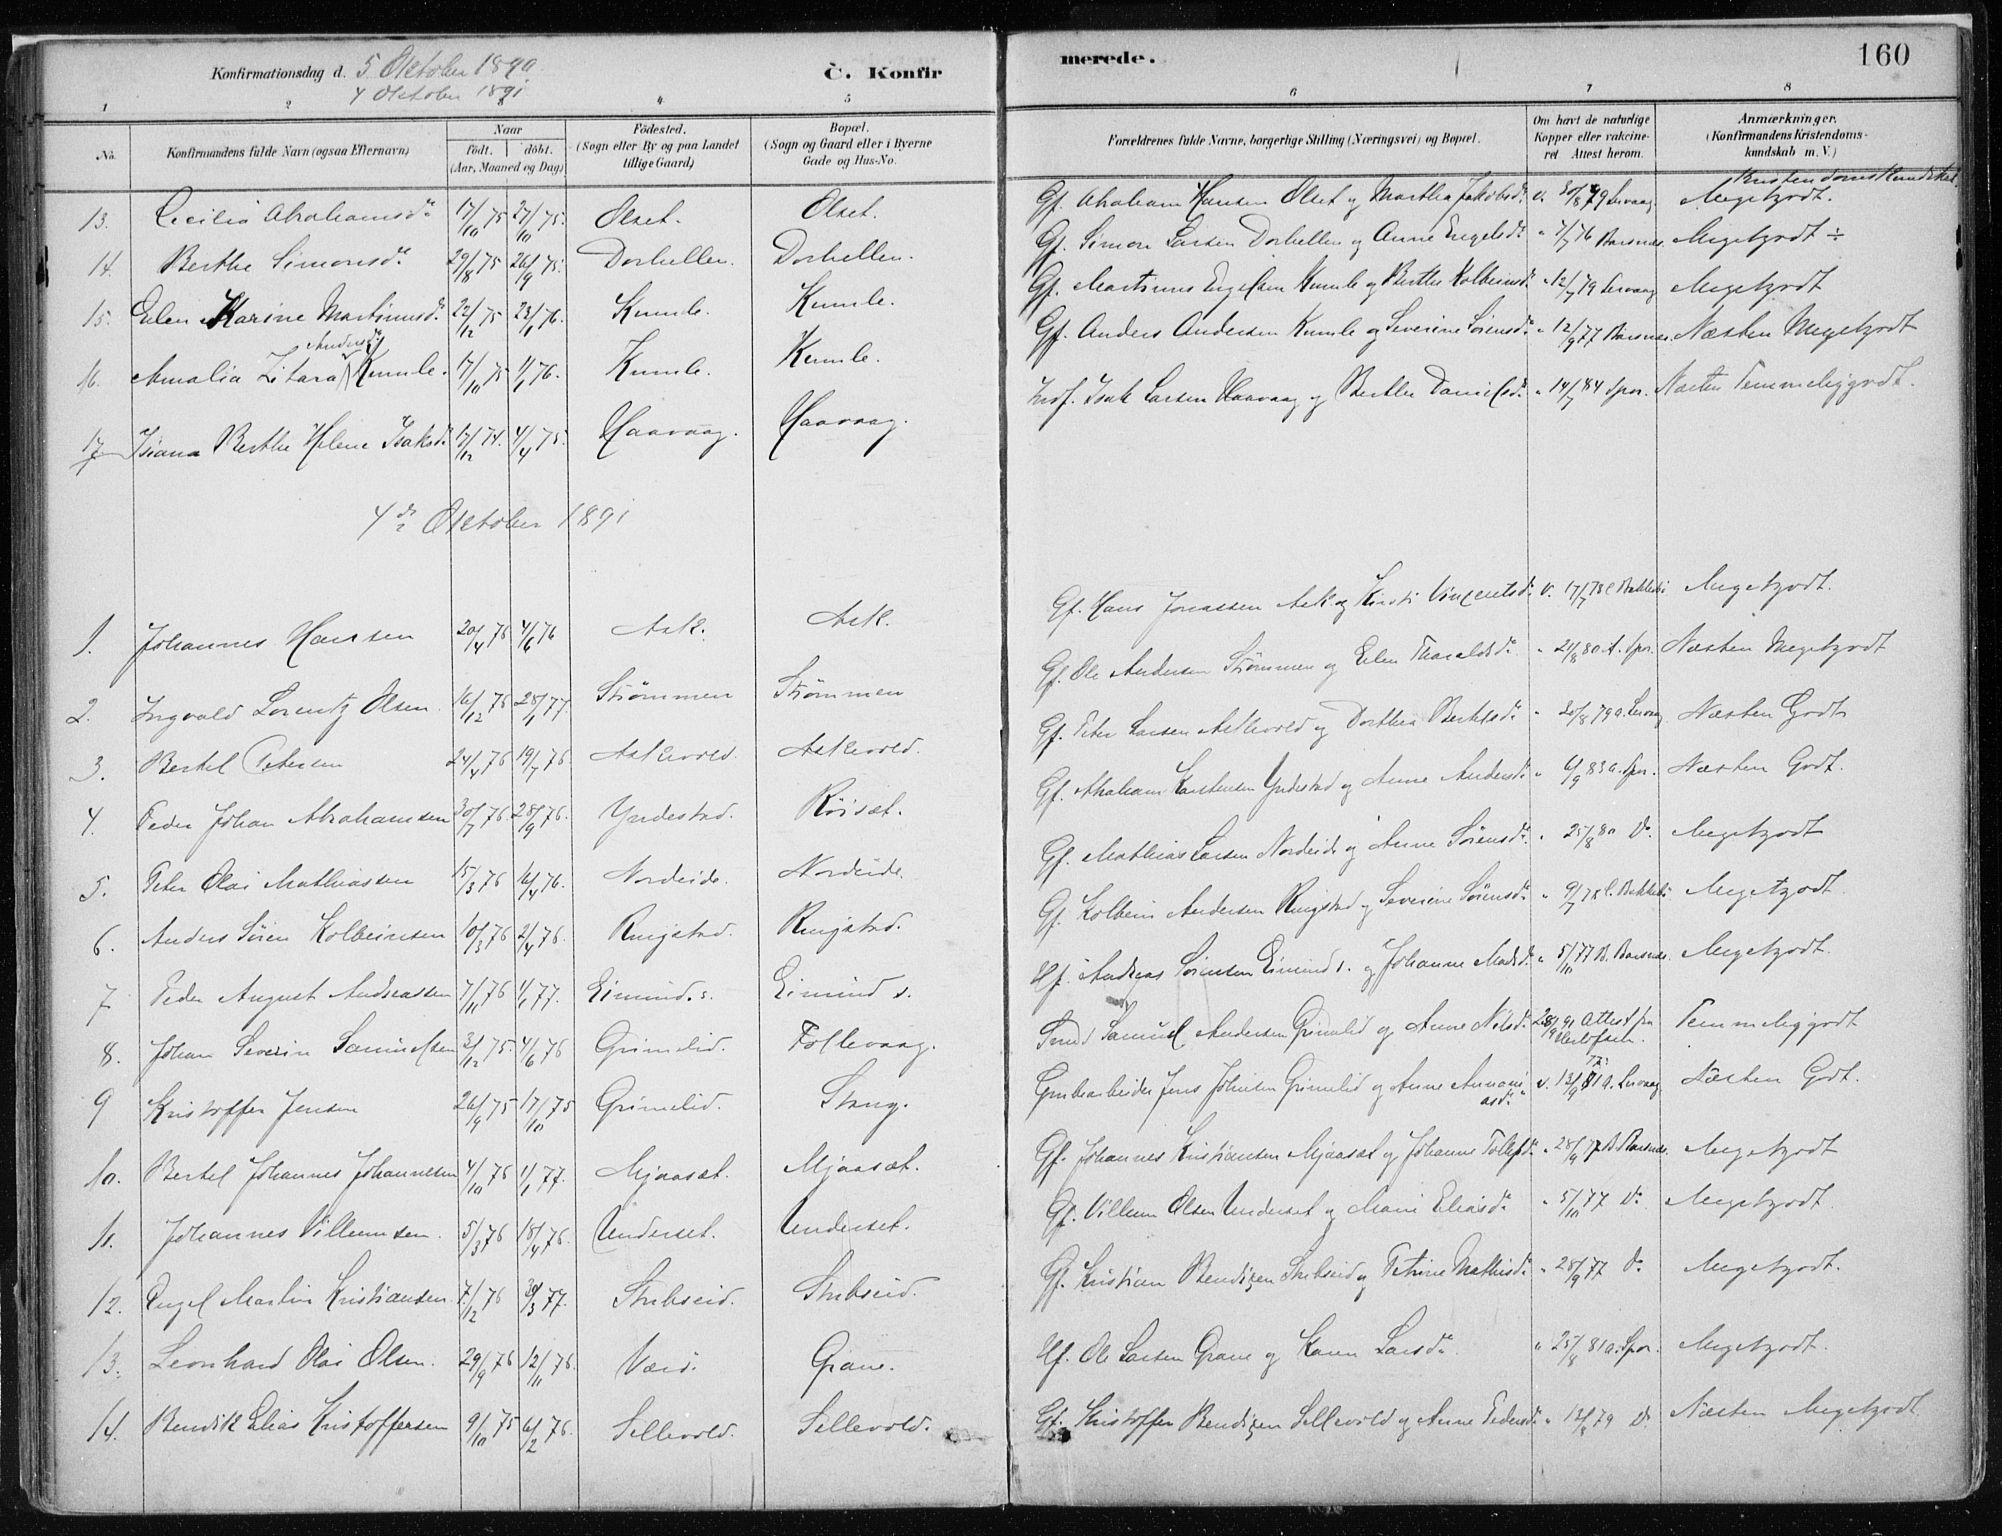 Konfirmationsdag d. 5 Oktober 1890. C. Konfirmerede. 160
4 Oktober 1891
1 2 3 4 5 6 7 8
No. Konfirmandens fulde Navn (ogsaa Efternavn) Naar født. døbt. (Aar, Maaned og Dag) Fødested. (Sogn eller By og paa Landet tillige Gaard) Bopæl. (Sogn og Gaard eller i Byerne Gade og Hus-No. Forældrenes fulde Navne, borgerlige Stilling (Næringsvei) og Bopæl. Om havt de naturlige Kopper eller vakcineret Attest herom. Anmærkninger. (Konfirmandens Kristendomskundskab m. V.)
Kristendomskundskab
13. Cecilia Abrahamsd. 17/10 75 27/10 75. Olset. Olset. Gf. Abraham Hansen Olset og Martha Jakobsd. v. 30/8 79 Lervaag Megetgodt.
14. Berthe Simonsd. 29/8 75 26/9 75. Dorhellen. Dorhellen. Gf. Simon Larsen Dorhellen og Anne Engelsd. " 7/7 76 Barsnes. Megetgodt ÷
15. Elen Karine Martinusd. 22/12 75 23/1 76. Kumle. Kumle. Gf. Martinus Engelsen Kumle og Berthe Kolbeinsd. " 12/7 79 Lervaag Megetgodt
16. Amalia Zitara Andersd. Kumle. 17/10 75 1/1 76. Kumle. Kumle. Gf. Anders Andersen Kumle og Severine Sørensd. " 12/9 77 Barsnes. Næsten Megetgodt
17 Isiana Berthe Helene Isaksd. 17/12 74. 4/4 75. Haavaag. Haavaag. Indf. Isak Larsen Haavaag og Berthe Danielsd. " 14/7 84 Spor. Næsten Temmeliggodt.
4de Oktober 1891
1. Johannes Hansen 20/4 76 4/6 76 Ask. Ask. Gf. Hans Jonassen Ask og Kirsti Vincentsd. v. 17/7 78 C Bakkebø Megetgodt.
2. Ingvald Lorentz Olsen. 16/12 76 28/1 77. Strømmen Strømmen Gf. Ole Andersen Strømmen og Elen Tharaldsd. " 21/8 80 A. Spor. Næsten Megetgodt
3. Bertel Petersen 24/4 76 19/7 76 Askevold. Askevold. Gf. Peter Larsen Askevold og Dorthea Bertelsd. " 20/8 79 a. Lervaag Næsten Godt
4. Peder Johan Abrahamsen 30/7 76. 28/9 76. Yndestad. Röisæt. Gf. Abraham Karstensen Yndestad og Anne Andersd. " 6/9 83 a. Spor. Næsten Godt.
5. Peter Olai Mathiassen 15/3 76 16/4 76. Nordeide. Nordeide. Gf. Mathias Larsen Nordeide og Anne Sørensd. " 25/8 80 Do. Megetgodt
6. Anders Sören Kolbeinsen 10/3 76 2/4 76. Ringstad. Ringstad. Gf. Kolbein Andersen Ringstad og Severine Sörensd. " 9/7 78 C. Bakkebø Megetgodt.
7 Peder August Andreassen 7/11 76 1/1 77. Eimind. s. Eimind s. Hf. Andreas Sörensen Eimind s. og Johanne Madsd. " 5/10 77 B. Barsnes. Megetgodt.
8. Johan Severin Samuelsen 3/12 75. 4/6 76 Grimelid. Follevaag. Smed Samuel Andersen Grimelid og Anne Nilsd. 28/9 91 Attest fra Temmeliggodt
9 Kristoffer Jensen 26/9 75 17/10 75 Grimelid. Stang. Grubearbeider Jens Johnsen Grimelid og Anne Ananiasd. v. 13/9 81 a. Lervaag Næsten Godt.
10. Bertel Johannes Johannesen 4/10 76 1/1 77. Mjaasæt. Mjaasæt. Gf. Johannes Kristiansen Mjaasæt og Johanne Tollefsd. " 28/9 77 B Barsnes. Megetgodt
11. Johannes Villumsen. 5/3 76 18/4 76. Underset. Underset. Gf. Villum Olsen Underset og Marie Eliasd. " 5/10 77 Do. Megetgodt.
12. Engel Martin Kristiansen. 7/12 76 30/3 77. Stubseid. Stubseid. Gf. Kristian Bendixen Stubseid og Petrine Mathisd. " 28/9 77 Do. Megetgodt.
13. Leonhard Olai Olsen. 29/9 76 12/11 76. Værö. Grane. Hf. Ole Larsen Grane og Karen Larsd. " 25/8 81 a. Spor. Megetgodt.
14. Bendik Elias Kristoffersen 9/10 75 6/2 76. Sellevold. Sellevold. Gf. Kristoffer Bendixen Sellevold og Anne Pedersd. " 12/8 79 Do Næsten Megetgodt